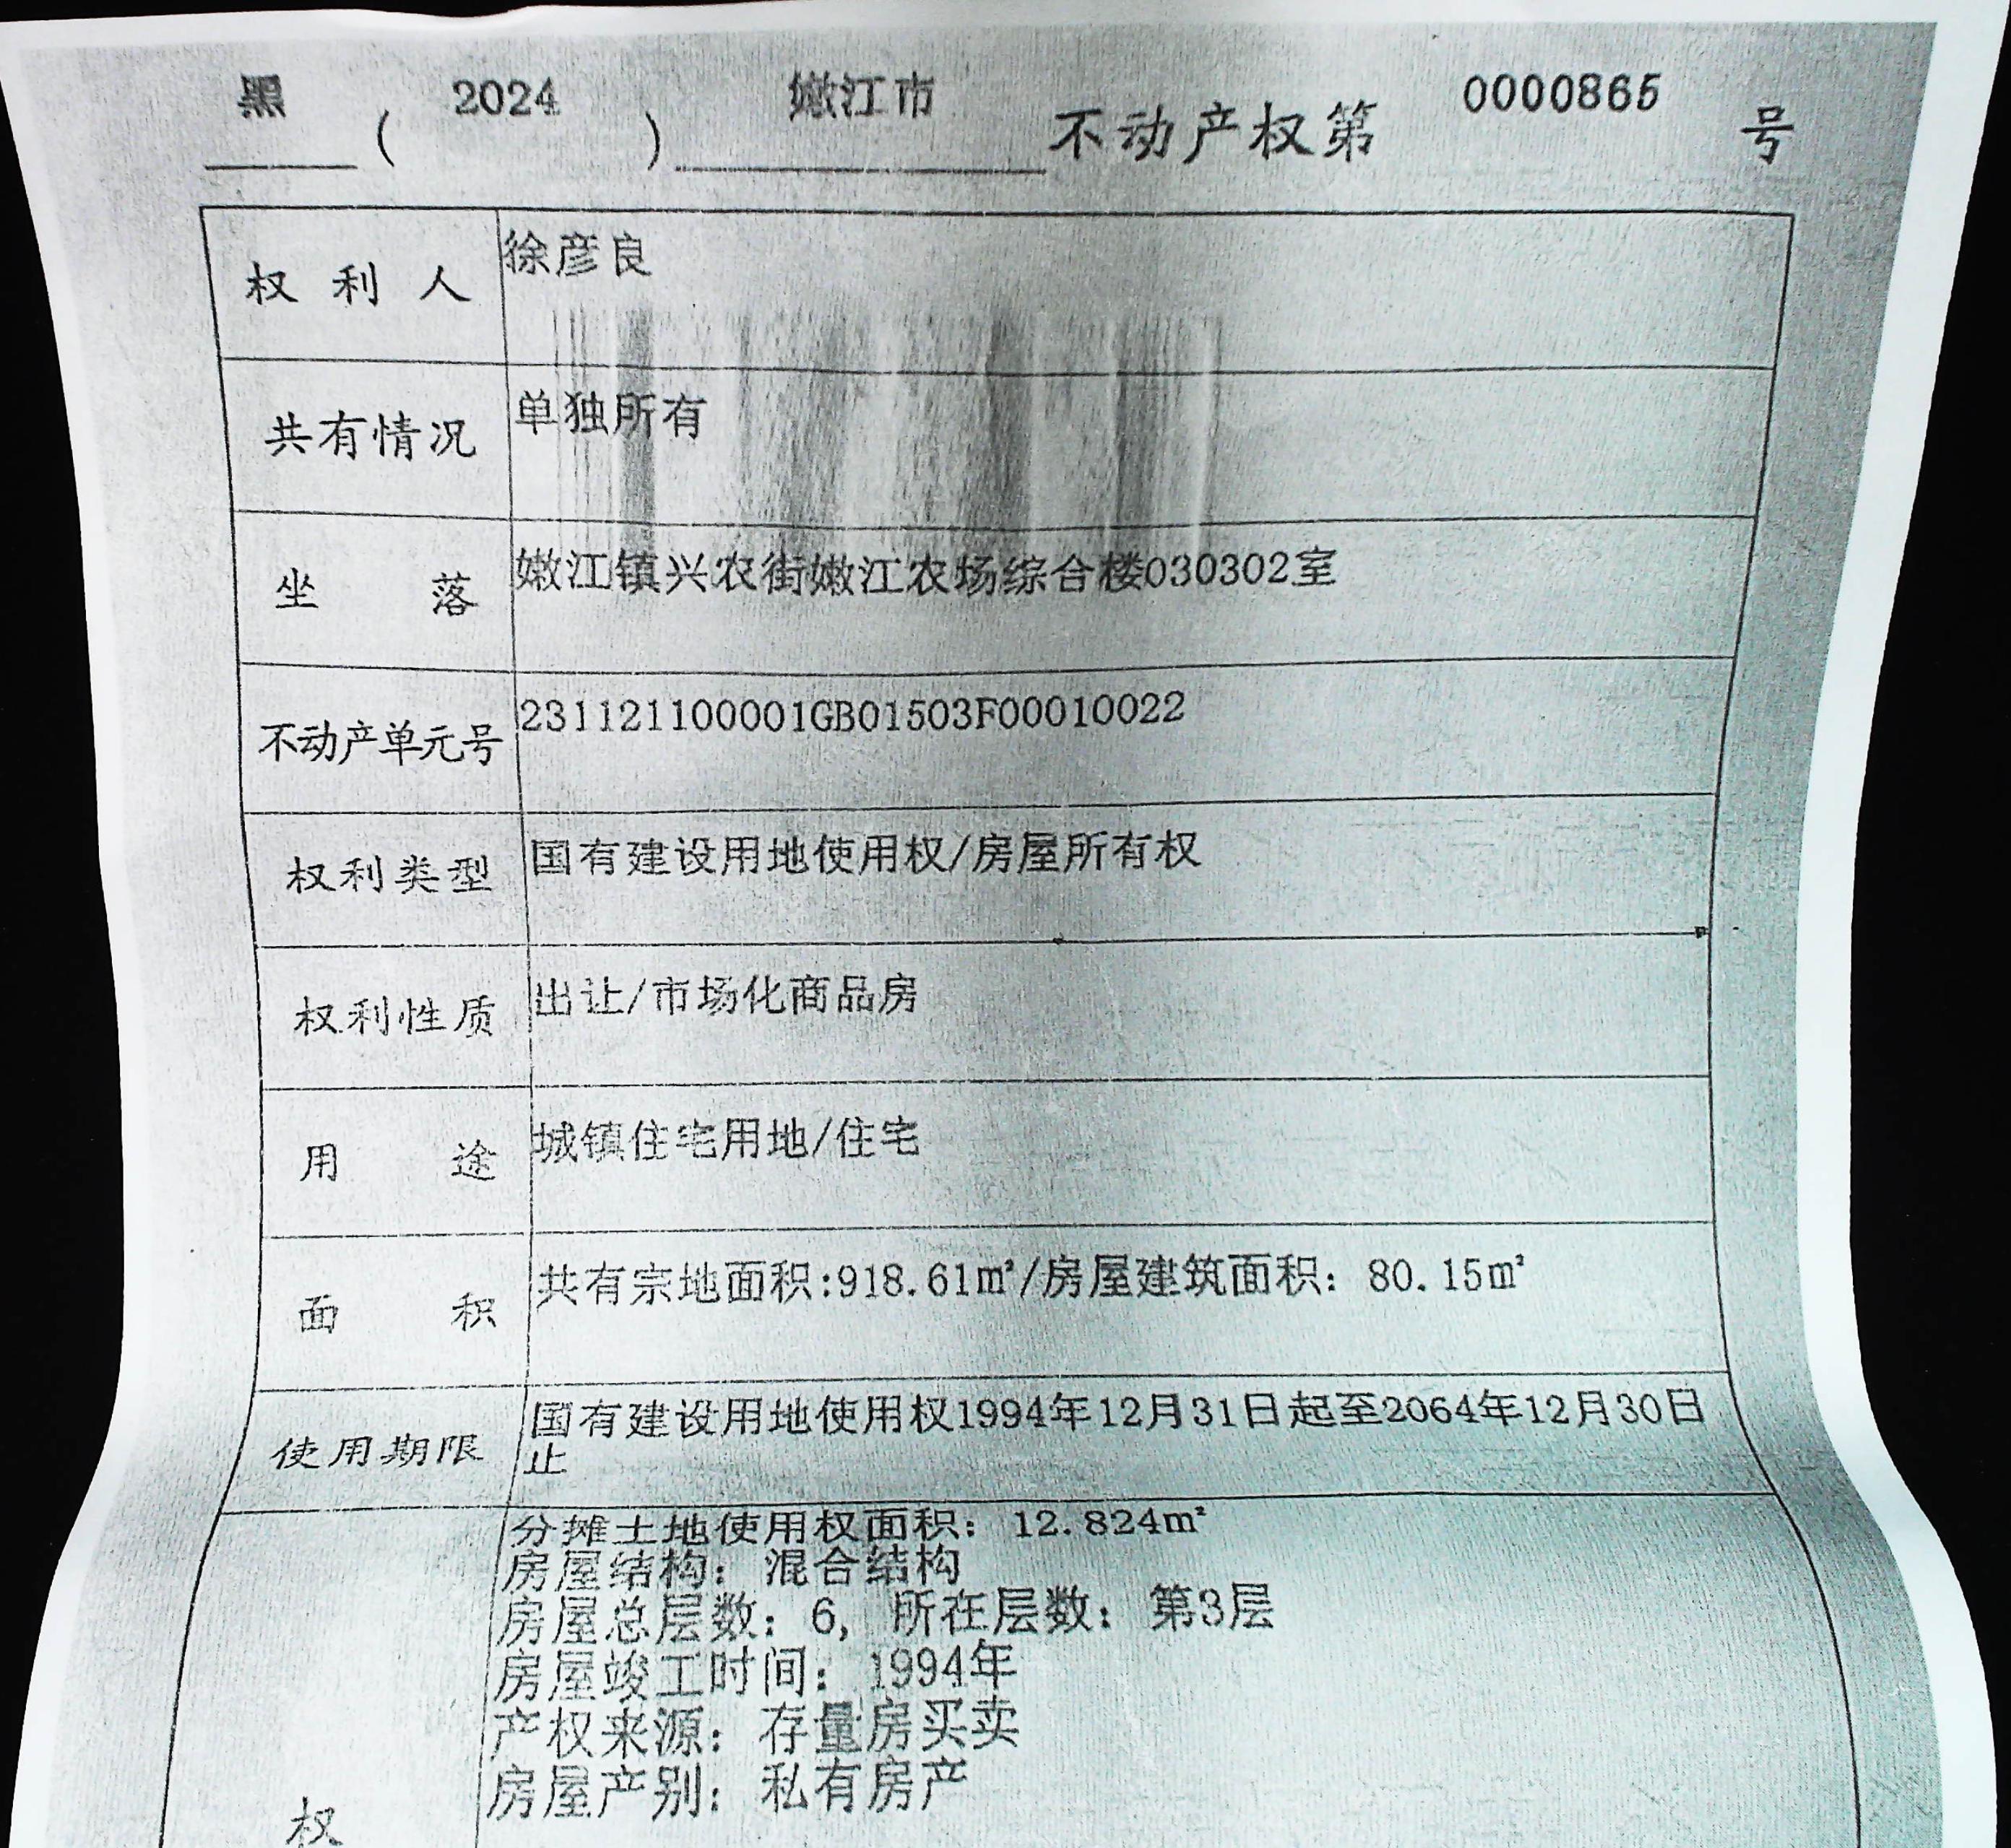 黑 ( 2024 ) 嫩江市 不动产权第 0000865 号
权利人 徐彦良
共有情况 单独所有
坐落 嫩江镇兴农街嫩江农场综合楼030302室
不动产单元号 231121100001GB01503F00010022
权利类型 国有建设用地使用权/房屋所有权
权利性质 出让/市场化商品房
用途 城镇住宅用地/住宅
面积 共有宗地面积:918.61㎡/房屋建筑面积：80.15㎡
使用期限 国有建设用地使用权1994年12月31日起至2064年12月30日
止
分摊土地使用权面积：12.824㎡
房屋结构：混合结构
房屋总层数：6，所在层数：第3层
房屋竣工时间：1994年
产权来源：存量房买卖
房屋产别：私有房产
权